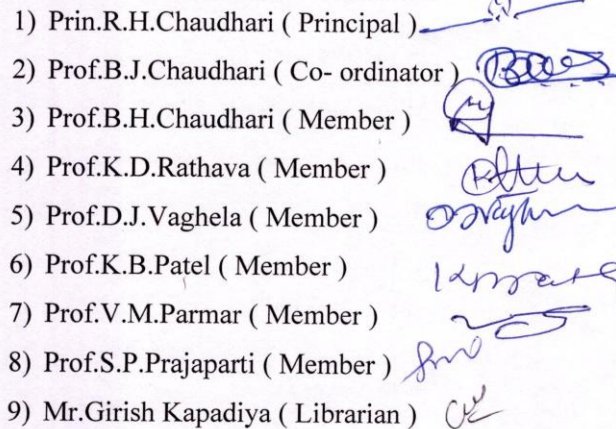 1) Prin.R.H.Chaudhari ( Principal )
2) Prof.B.J.Chaudhari ( Co- ordinator )
3) Prof.B.H.Chaudhari ( Member )
4) Prof.K.D.Rathava ( Member )
5) Prof.D.J.Vaghela ( Member )
6) Prof.K.B.Patel ( Member )
7) Prof.V.M.Parmar ( Member )
8) Prof.S.P.Prajaparti ( Member )
9) Mr.Girish Kapadiya ( Librarian )